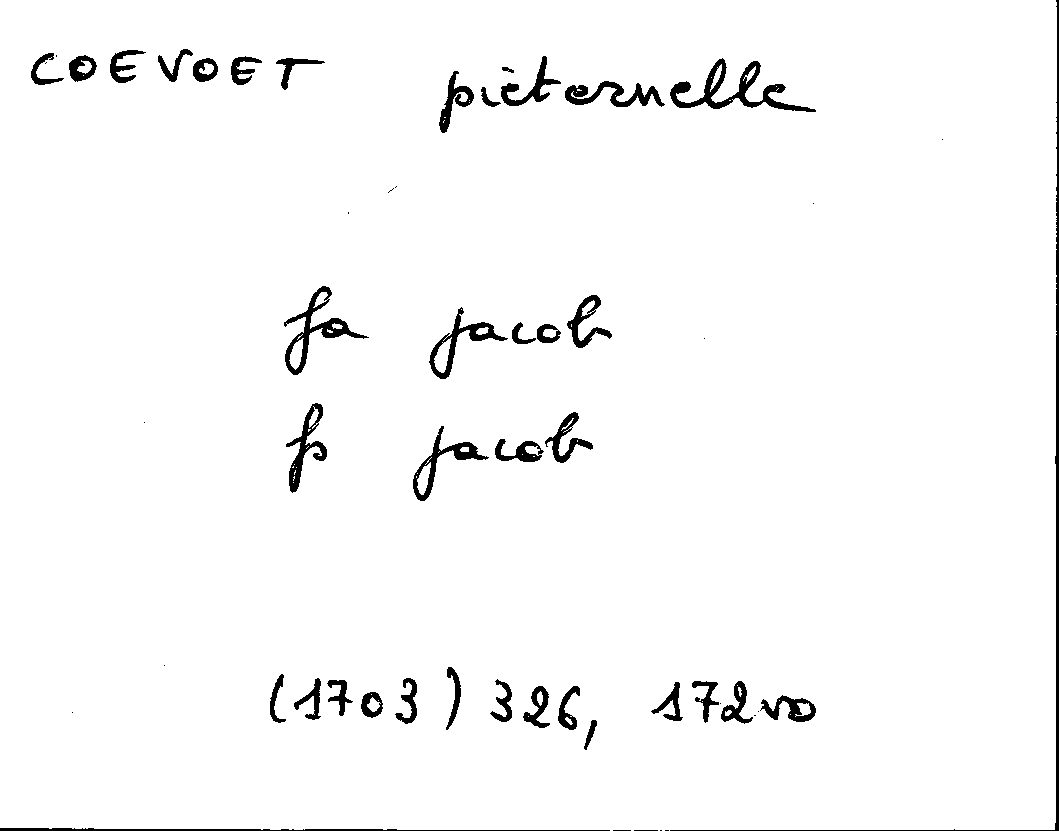 COEVOET pieternelle
fa jacob
fs jacob
(1703) 326, 172vo